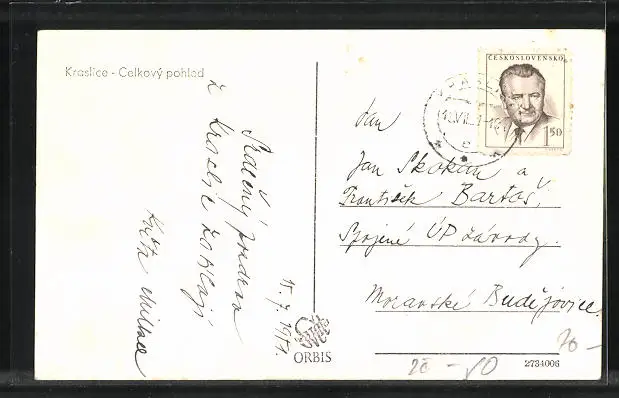 Kraslice - Celkový pohled
Srdečný pozdrav
z Kraslic zasílají
15. 7. 1951.
ČESKOSLOVENSKO
1 50
Pan
Jan Skokan a
František Bartoš,
Spojené ÚP závody.
Moravské Budějovice.
ORBIS
2734006
20 -